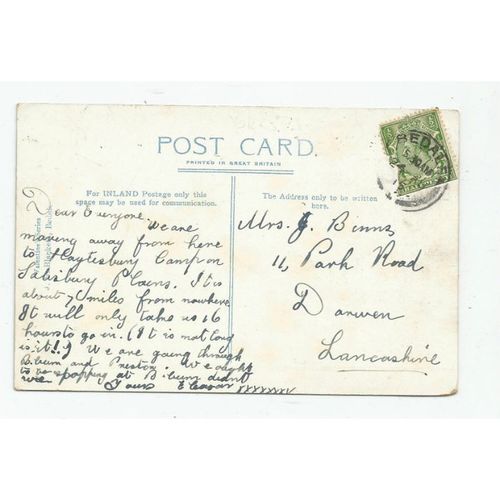 POST CARD.
PRINTED IN GREAT BRITAIN
For INLAND Postage only this
space may be used for communication.
The Address only to be written
here.
Dear Everyone,
We are
moving away from here
to Heytesbury Camp on
Salisbury Plains. It is
about 70 miles from nowhere
It will only take us 16
hours to go in. (It is not long
is it!!) We are going through
B.burn and Preston. We ought
to be stopping at B.burn didnt
we. Yours
Mrs. J. Binns
11, Park Road
Darwen
Lancashire